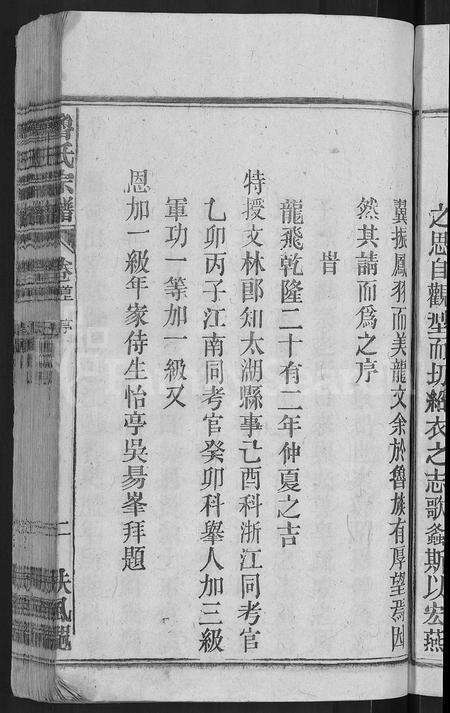 之思自觀型而切緇衣之志歌螽斯以宏燕
翼振鳳羽而美龍文余於魯族有厚望焉因
然其請而爲之序
旹
龍飛乾隆二十有二年仲夏之吉
特授文林郎知太湖縣事己酉科浙江同考官
乙卯丙子江南同考官癸卯科舉人加三級
軍功一等加一級又
恩加一級年家侍生怡亭吳易峯拜題
魯氏宗譜
卷首 序
二
扶風堂